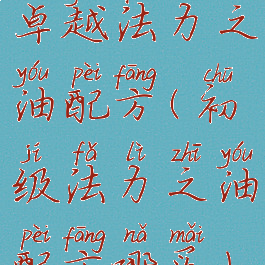 卓越法力之
yóu pèi fāng chū
油配方(初
jí fǎ lì zhī yóu
级法力之油
pèi fāng nǎ mǎi
配方哪买)